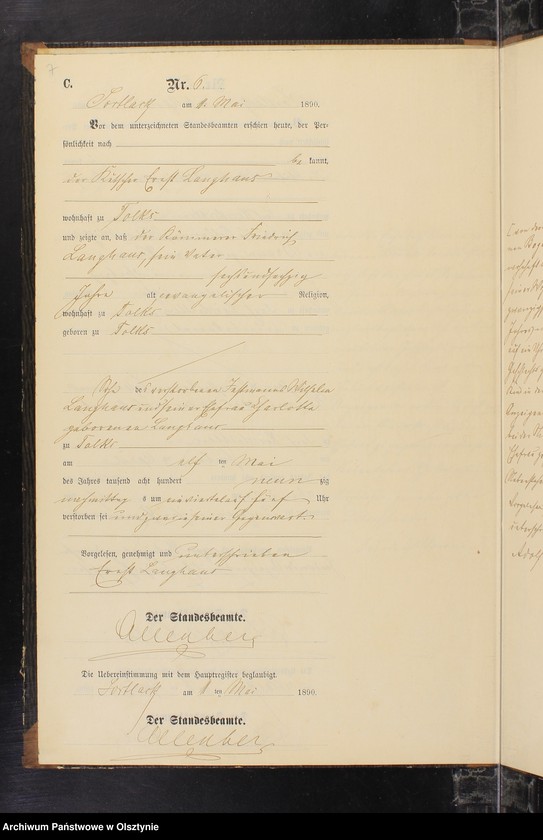 7
C.
Nr. 6.
Sortlack am 11. Mai 1890.
Vor dem unterzeichneten Standesbeamten erschien heute, der Per-
sönlichkeit nach
be kannt,
der Ernst Langhans
wohnhaft zu Tolks
und zeigte an, daß der Kämmerer Friedrich
Langhans, sein Vater
sechsundsechzig
Jahre alt evangelischer Religion,
wohnhaft zu Tolks
geboren zu Tolks
Sohn des verstorbenen Instmannes Wilhelm
Langhans und seiner Ehefrau Charlotte
geborenen Langhans
zu Tolks
am elf ten Mai
des Jahres tausend acht hundert neun zig
nachmittags um ein viertel auf fünf Uhr
verstorben sei und zwar in seiner Gegenwart.
Vorgelesen, genehmigt und unterschrieben
Ernst Langhans
Der Standesbeamte.
Die Uebereinstimmung mit dem Hauptregister beglaubigt.
Sortlack am ten Mai 1890.
Der Standesbeamte.
Archiwum Państwowe w Olsztynie